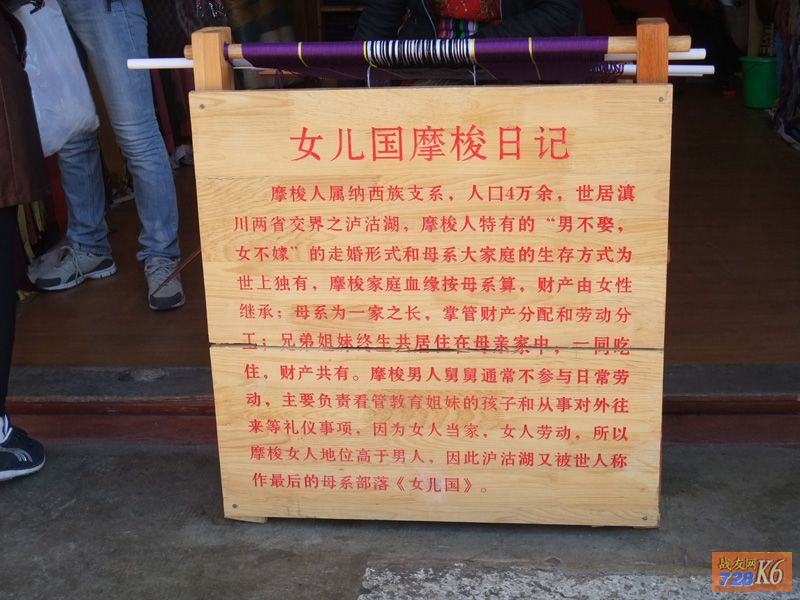 女儿国摩梭日记
摩梭人属纳西族支系，人口4万余，世居滇
川两省交界之泸沽湖，摩梭人特有的“男不娶，
女不嫁”的走婚形式和母系大家庭的生存方式为
世上独有，摩梭家庭血缘按母系算，财产由女性
继承；母系为一家之长，掌管财产分配和劳动分
工；兄弟姐妹终生共居住在母亲家中，一同吃
住，财产共有。摩梭男人舅舅通常不参与日常劳
动，主要负责看管教育姐妹的孩子和从事对外往
来等礼仪事项，因为女人当家，女人劳动，所以
摩梭女人地位高于男人，因此泸沽湖又被世人称
作最后的母系部落《女儿国》。
战友网
728K6